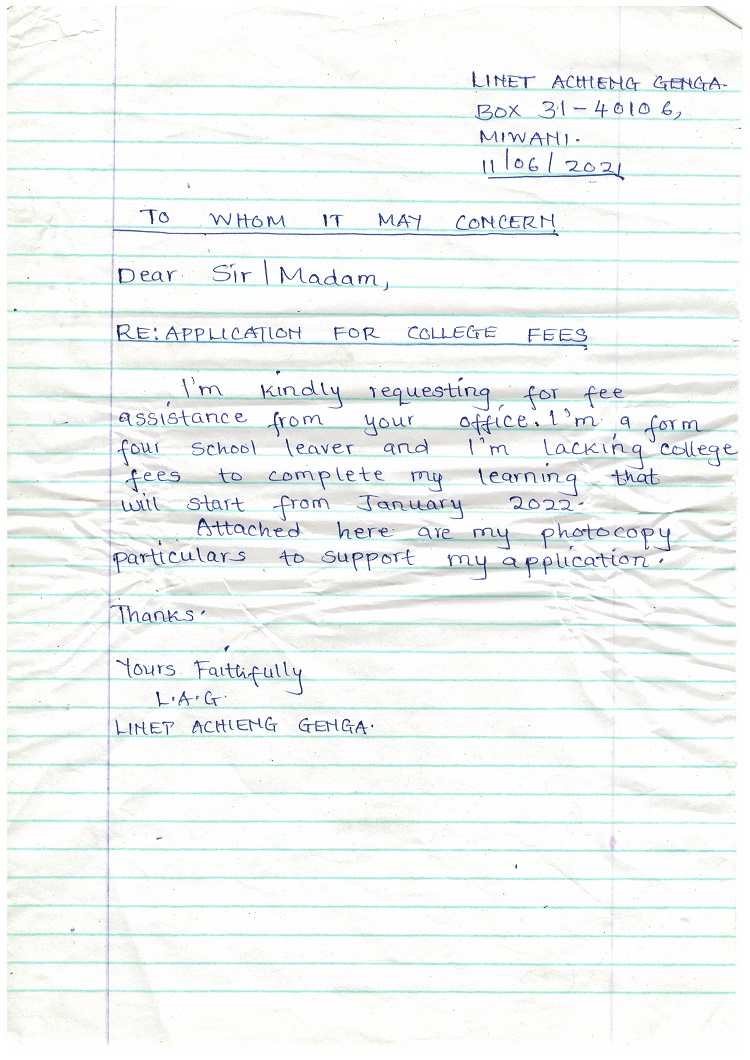 LINET ACHIENG GENGA.
BOX 31-40106,
MIWANI.
11/06/2021
TO WHOM IT MAY CONCERN
Dear Sir/Madam,
RE: APPLICATION FOR COLLEGE FEES
I'm kindly requesting for fee
assistance from your office. I'm a form
four school leaver and I'm lacking college
fees to complete my learning that
will start from January 2022.
Attached here are my photocopy
particulars to support my application.
Thanks.
Yours Faithfully
L.A.G.
LINET ACHIENG GENGA.